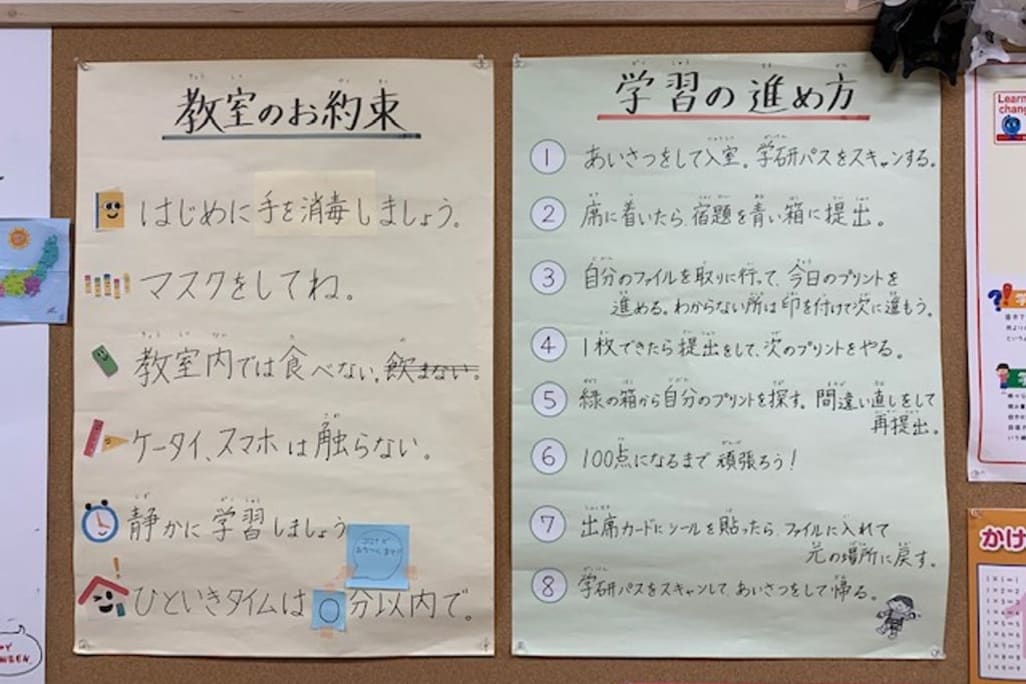 教室のお約束
はじめに手を消毒しましょう。
マスクをしてね。
教室内では食べない。飲まない。
ケータイ、スマホは触らない。
静かに学習しましょう
ひといきタイムは0分以内で。
学習の進め方
1 あいさつをして入室。学研パスをスキャンする。
2 席に着いたら、宿題を青い箱に提出。
3 自分のファイルを取りに行って、今日のプリントを
進める。わからない所は印を付けて次に進もう。
4 1枚できたら提出をして、次のプリントをやる。
5 緑の箱から自分のプリントを探す。間違い直しをして
再提出。
6 100点になるまで頑張ろう！
7 出席カードにシールを貼ったら、ファイルに入れて
元の場所に戻す。
8 学研パスをスキャンして、あいさつをして帰る。
Learn
chang
かけ